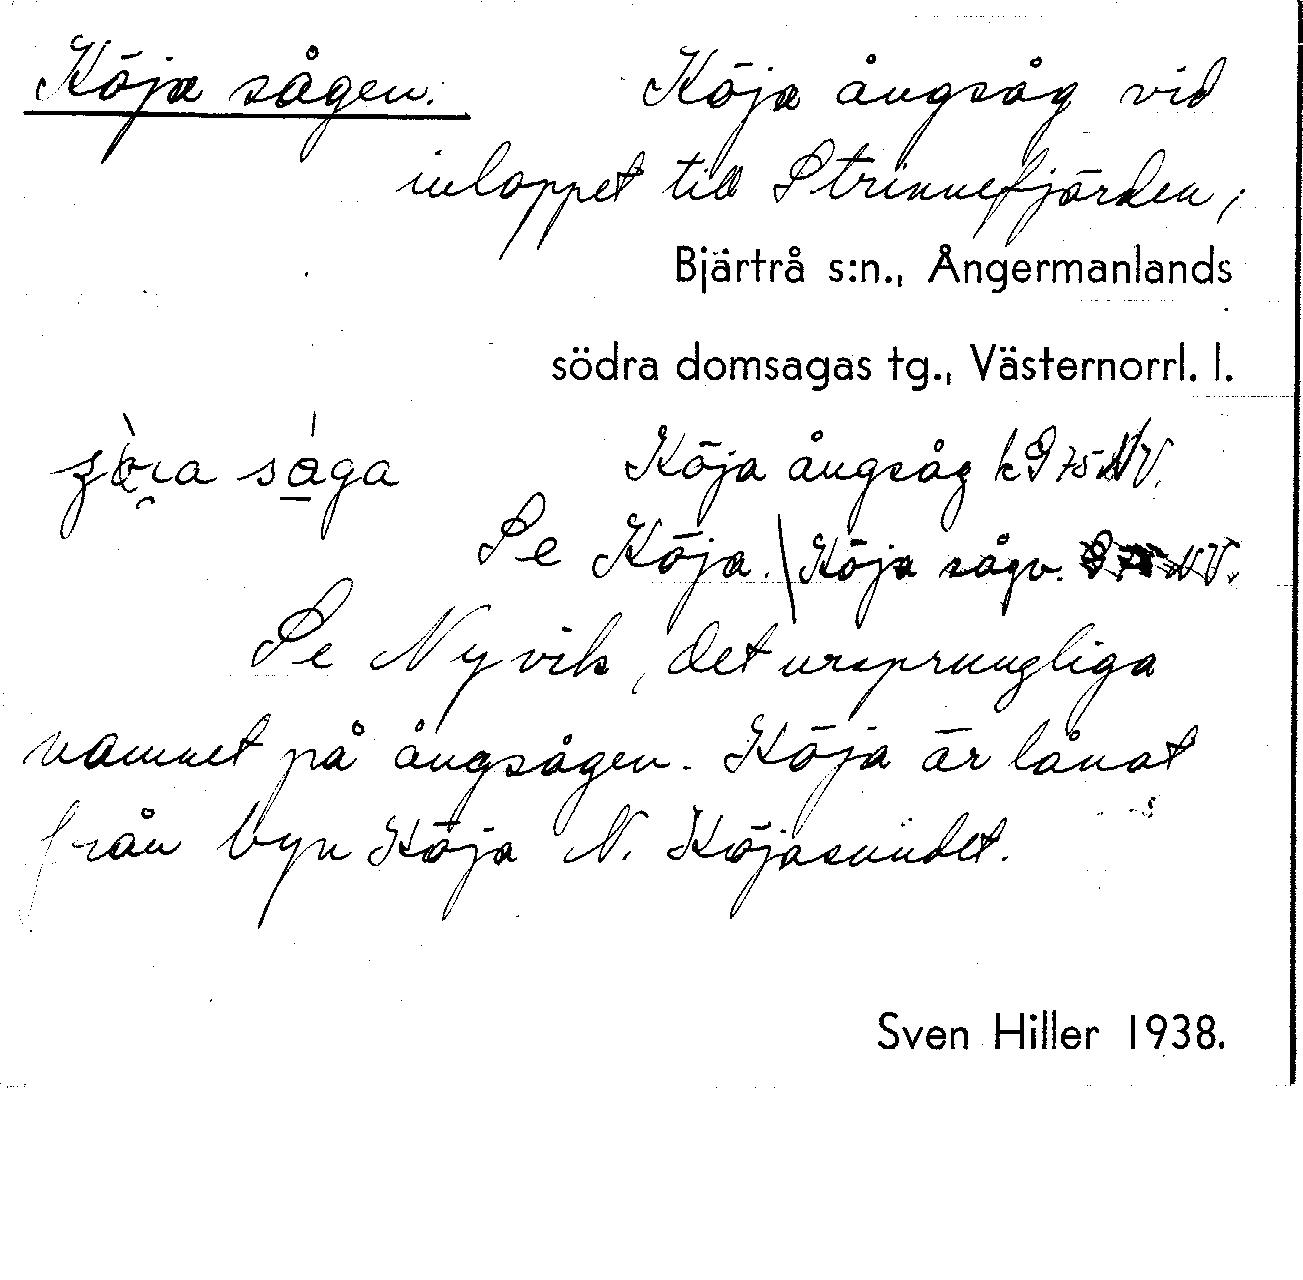 Köja sågen. Köja ångsåg vid
inloppet till Strinnefjärden,
Bjärtrå s:n., Ångermanlands
södra domsagas tg., Västernorrl. l.
saga Köja ångsåg
Se Köja. Köja sågv. NV.
Se Nyvik, det ursprungliga
namnet på ångsågen. Köja är lånat
från byn Köja N. Köjasundet.
Sven Hiller 1938.